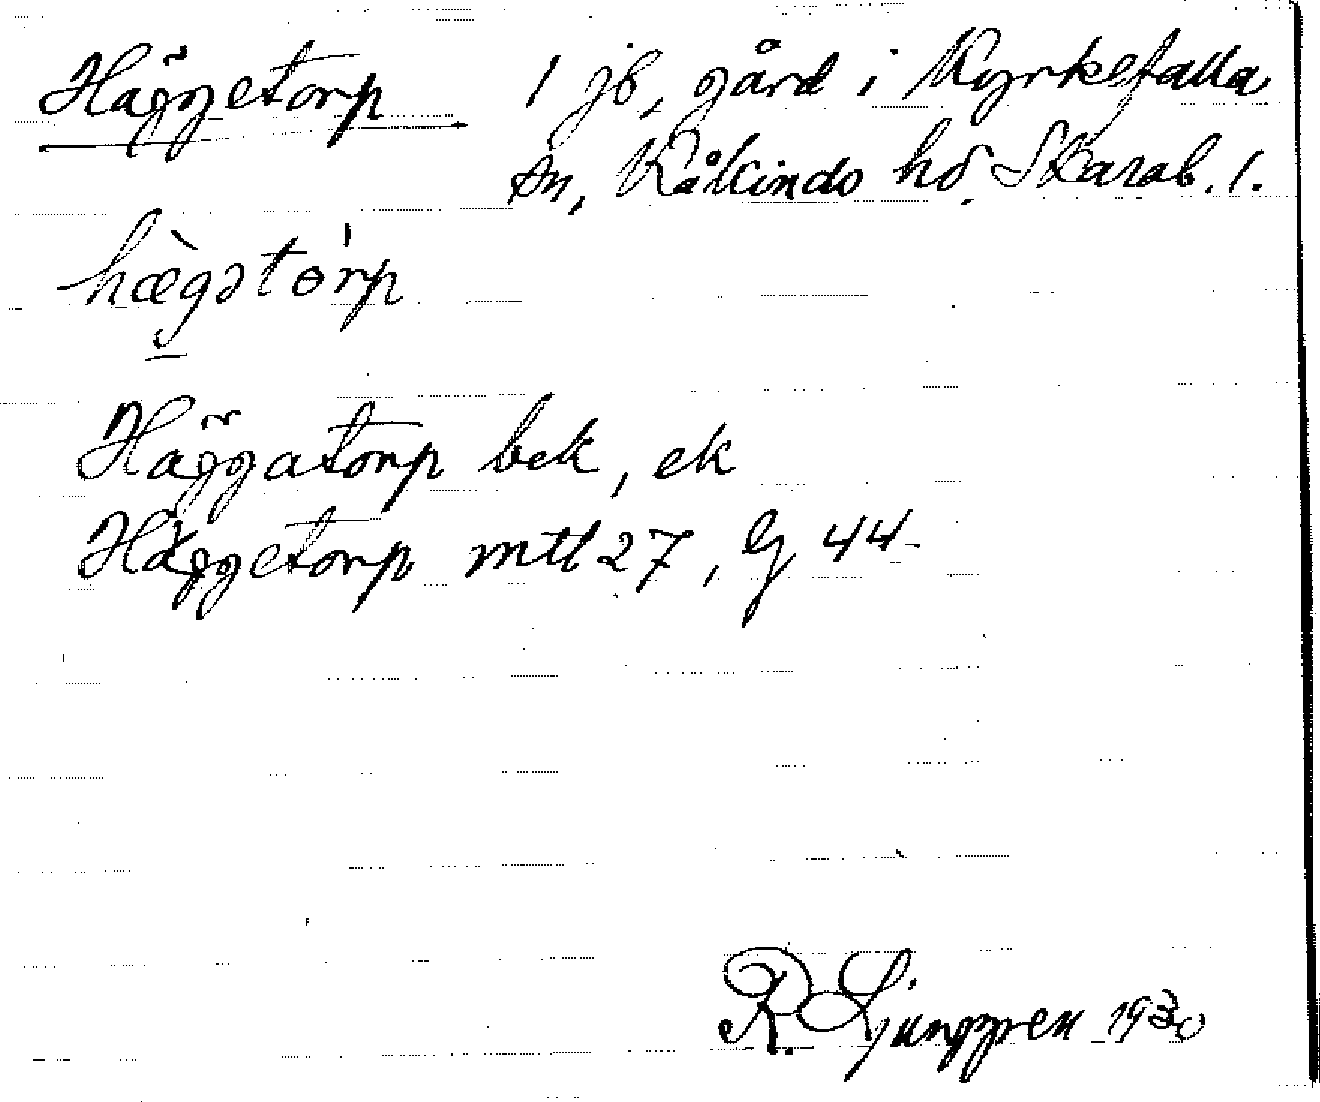 Häggetorp 1 jb, gård i Kyrkefalla
sn, Kåkinds hd Skarab. l.
hæ̀gətórp
Häggatorp bek, ek
Häggetorp mtl 27, G 44
R. Ljunggren 1930